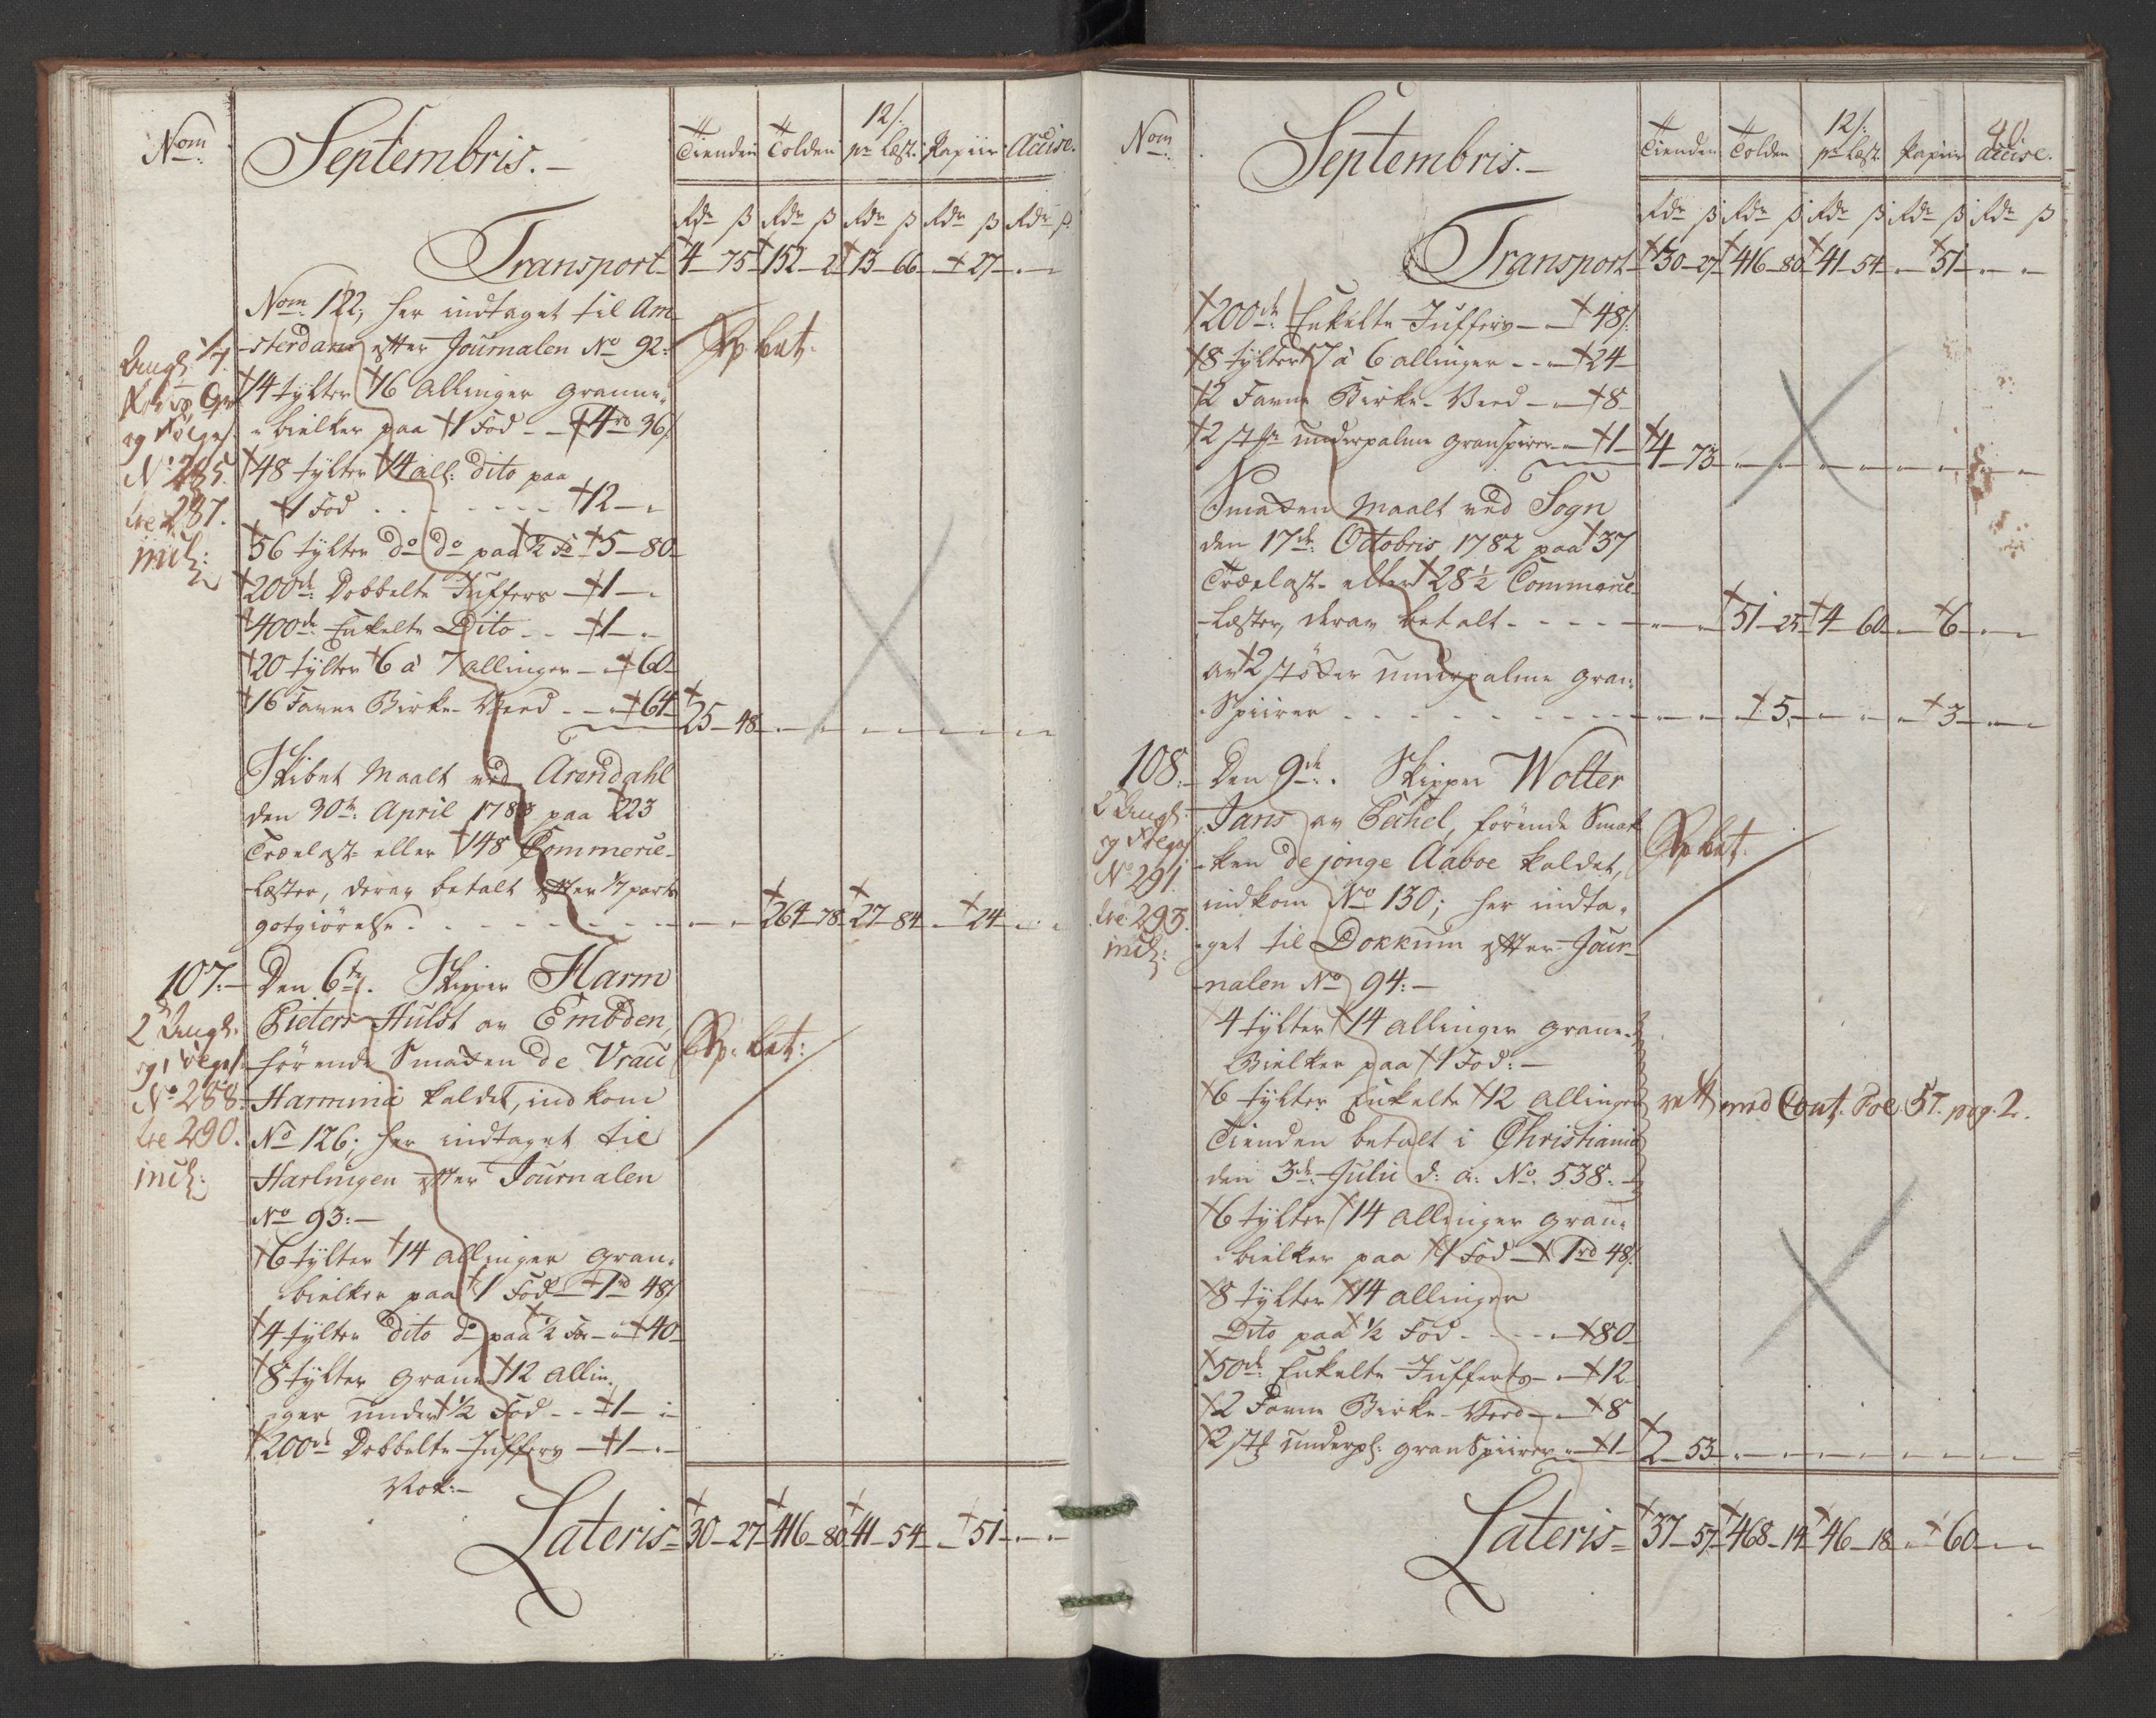 Nom:
Septembris.
Tienden Tolden 12/: pr Læst. Papiir Accise.
Rdr ß Rdr ß Rdr ß Rdr ß Rdr ß
Transport 4 75 152 2 13 66 - 27 - -
Nom: 122, her indtaget til Am-
-sterdam efter Journalen No 92:
bet:
14 tylter 16 Allinger Granne
bielker paa 1 Fod - - 4rd 36/
48 tylter 14 all: dito paa
1 Fod - - - 12 -
56 tylter do do paa ½ Fo 5-80
200de Dobbelte Juffers - 1 -
400de Enkelte Dito - - 1 -
20 tylter 6 a 7 allinger - 60
16 Favne Birke-Veed - - 64 25-48
og Følges.
No 285.
tre 287.
incl:
Skibet Maalt ved Arendahl
den 30te April 1783 paa 223
Trælast eller 148 Commerce-
Læster, derav betalt efter 1/7 parts
gotgiörelse - - - 264-78 27-84 - 24 - -
107. Den 6te. Skipper Harm
Pieters Hulst av Embden,
förende Smakken de Vrau
Harmina kaldet, indkom
No 126; her indtaget til
Harlingen efter Journalen
No 93:
bet:
No 288
tre 290.
incl:
6 tylter 14 allinger Gran-
bielker paa 1 Fod - 1rd 48/
4 tylter dito do paa ½ Fo - 40
8 tylter Grane 12 allin-
ger under ½ Fod - - 1 -
200de Dobbelte Juffers - 1 -
Lateris 30-27 416-80 41-54 - 51 - -
Nom:
Septembris.
40
Tienden Tolden 12/: pr Læst. Papiir Accise.
Rdr ß Rdr ß Rdr ß Rdr ß Rdr ß
Transport 30-27 416-80 41-54 - 51 - -
200de Enkelte Juffers - - 48/.
8 tylter 7 à 6 allinger - - 24
2 Favne Birke-Veed - - 8
2 st: underpalme granspirer - 1 4-73
Smakken Maalt ved Sogn
den 17de Octobris 1782 paa 37
Trælast- eller 28½ Commerce-
-Læster, derav betalt - - - 51-25 4-60 - 6 - -
av 2 støkker underpalme gran-
Spiirer - - - 5 - - - 3 - -
108. Den 9de. Skipper Wolter
Jans av Pechel, förende Smak-
-ken de jonge Aaboe kaldet,
indkom No 130; her indta-
-get til Dokkum efter Jour-
-nalen No 94:
bet.
No 291
tre 293.
incl:
4 tylter 14 allinger Grane-
Bielker paa 1 Fod:
6 tylter Enkelte 12 allinger
Tienden betalt i Christiania
den 3de Julii d: a: No. 538.
med Cont. Fol 57. pag. 2.
6 tylter 14 allinger Gran-
bielker paa 1 Fod - 1rd 48/.
8 tylter 14 allinger
Dito paa ½ Fod - - - 80
50de Enkelte Juffers - - 12
2 Favne Birke-Veed - - 8
2 st: underpl: granSpiirer - 1 2-53
Lateris 37-57 468-14 46-18 - 60 - -